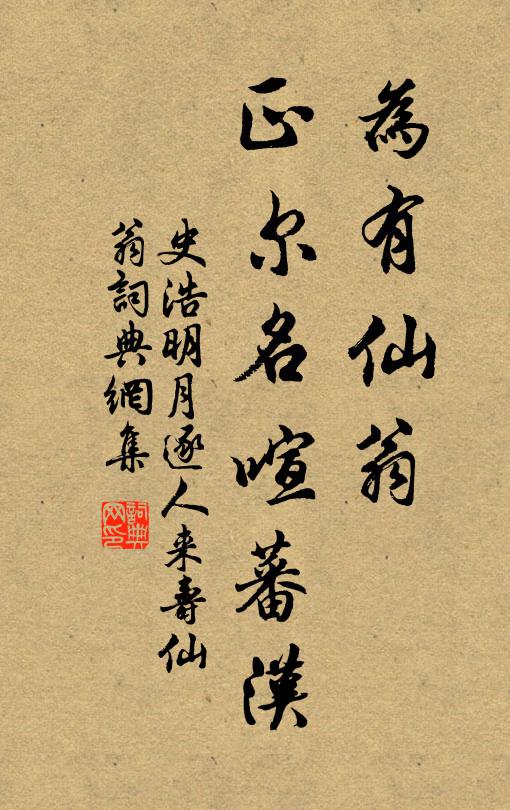 為有仙翁
正尔名喧蕃漢
史浩明月逐人来壽仙
翁詞典網集
詞典網印